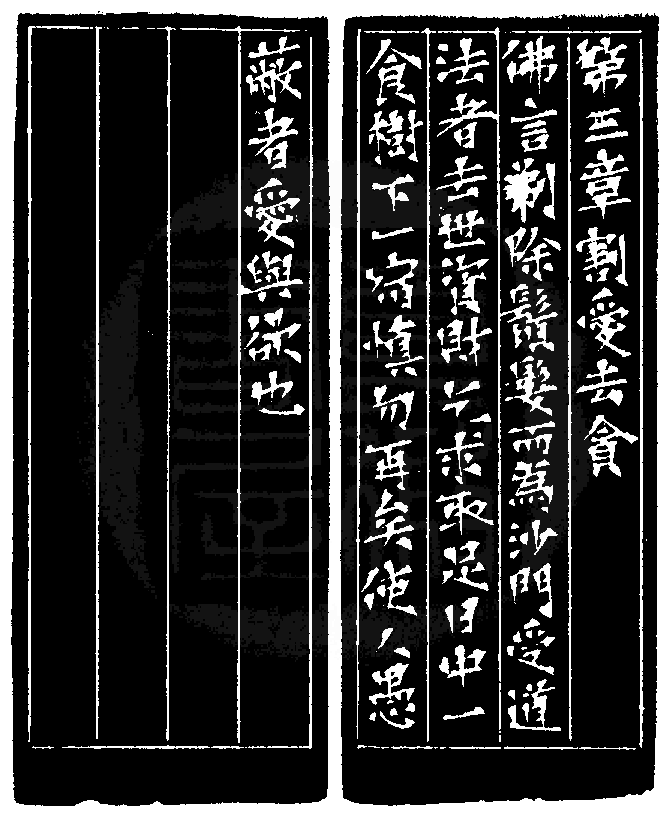 第三章割愛去貪
佛言剃除鬚髮而為沙門受道
法者去世資財乞求取足日中一
食樹下一宿慎勿再矣使人愚
蔽者愛與欲也